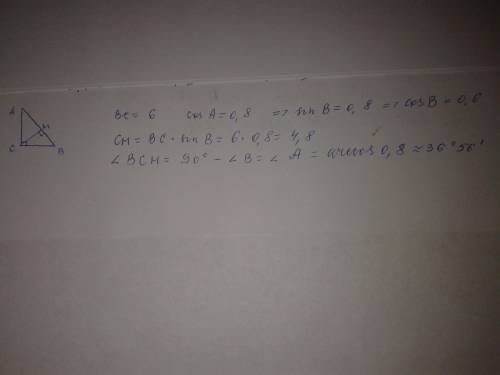 A
H
C
B
BC = 6 cos A = 0,8 => sin B = 0,8 => cos B = 0,6
CH = BC · sin B = 6 · 0,8 = 4,8
∠ BCH = 90° - ∠ B = ∠ A = arccos 0,8 ≈ 36°56'